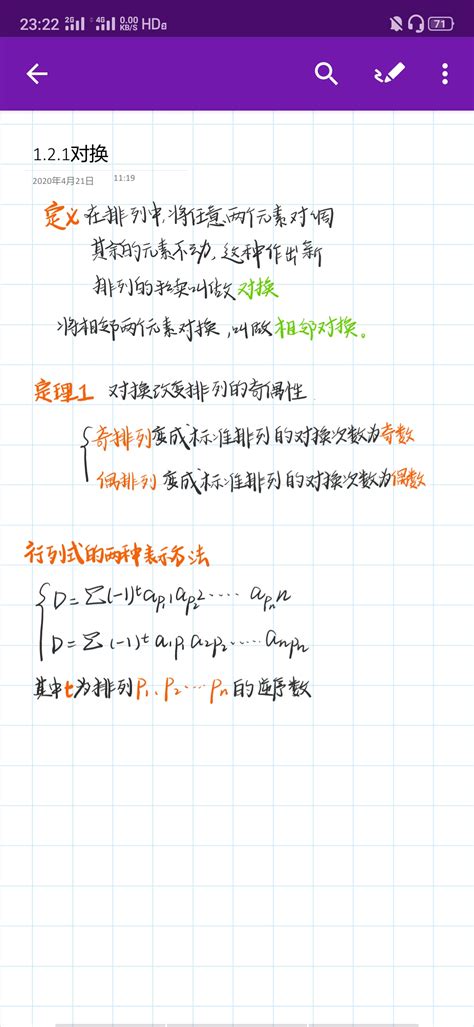 23:22 2G 4G 0.00 KB/S HD 71
1.2.1对换
2020年4月21日 11:19
定义 在排列中,将任意两个元素对调
其余的元素不动,这种作出新
排列的手续叫做对换
将相邻两个元素对换,叫做相邻对换。
定理1 对换改变排列的奇偶性
奇排列变成标准排列的对换次数为奇数
偶排列变成标准排列的对换次数为偶数
行列式的两种表示方法
D=∑(-1)ᵗaₚ₁1aₚ₂2……aₚₙn
D=∑(-1)ᵗa1p₁a2p₂……anpₙ
其中t为排列P₁、P₂…Pₙ的逆序数